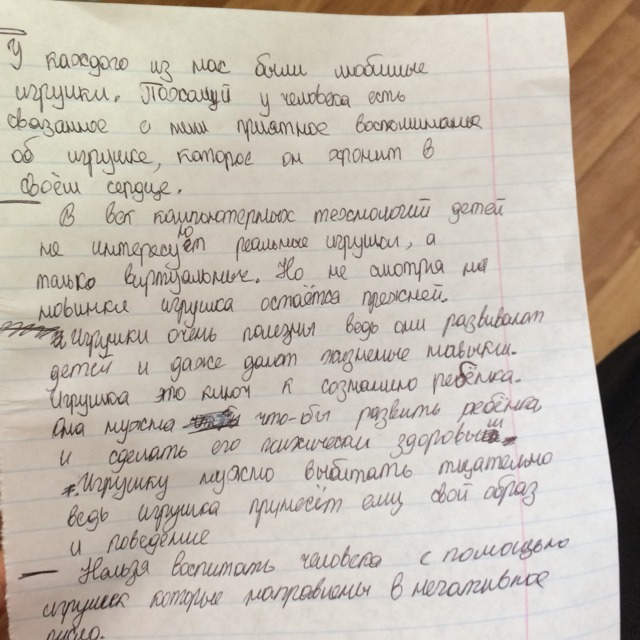 У каждого из нас были любимые
игрушки. Пожалуй у человека есть
связанное с ним приятное воспоминание
об игрушке, которое он хронит в
своём сердце.
В век компьютерных технологий детей
не интересуют реальные игрушки, а
только виртуальные. Но не смотря на
новинки игрушка остаётся прежней.
Игрушки очень полезны ведь они развивают
детей и даже дают жизненые навыки.
Игрушка это ключ к сознанию ребёнка.
Она нужна что-бы развить ребёнка
и сделать его психически здоровым
Игрушку нужно выбитать тщательно
ведь игрушка принесёт ему свой образ
и поведение
Нельзя воспитать человека с помощью
игрушек которые направлены в негативное
русло.